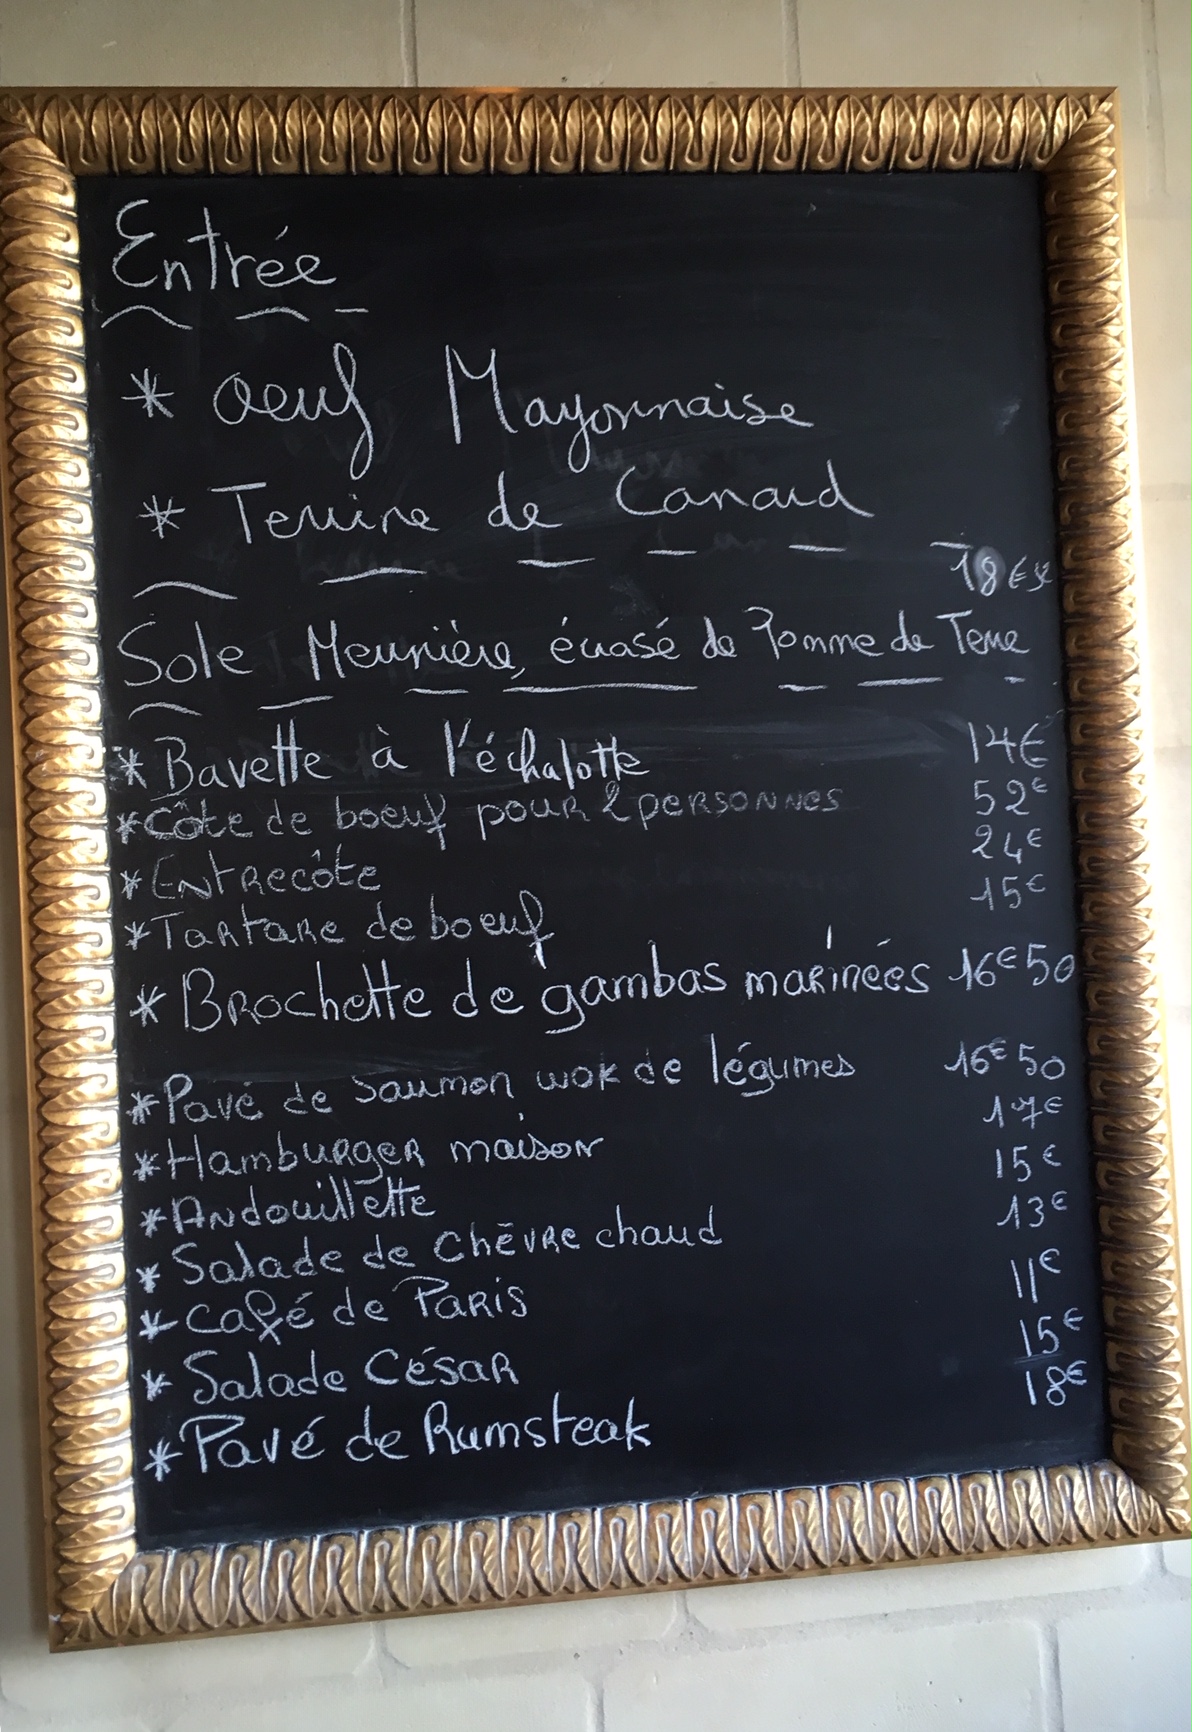 Entrée
* Oeuf Mayonnaise
* Terrine de Canard
18€
Sole Meunière, écrasé de Pomme de Terre
* Bavette à l'échalotte 14€
* Côte de boeuf pour 2 personnes 52€
* Entrecôte 24€
* Tartare de boeuf 15€
* Brochette de gambas marinées 16€50
* Pavé de saumon wok de légumes 16€50
* Hamburger maison 17€
* Andouillette 15€
* Salade de Chèvre chaud 13€
* Café de Paris 11€
* Salade César 15€
* Pavé de Rumsteak 18€